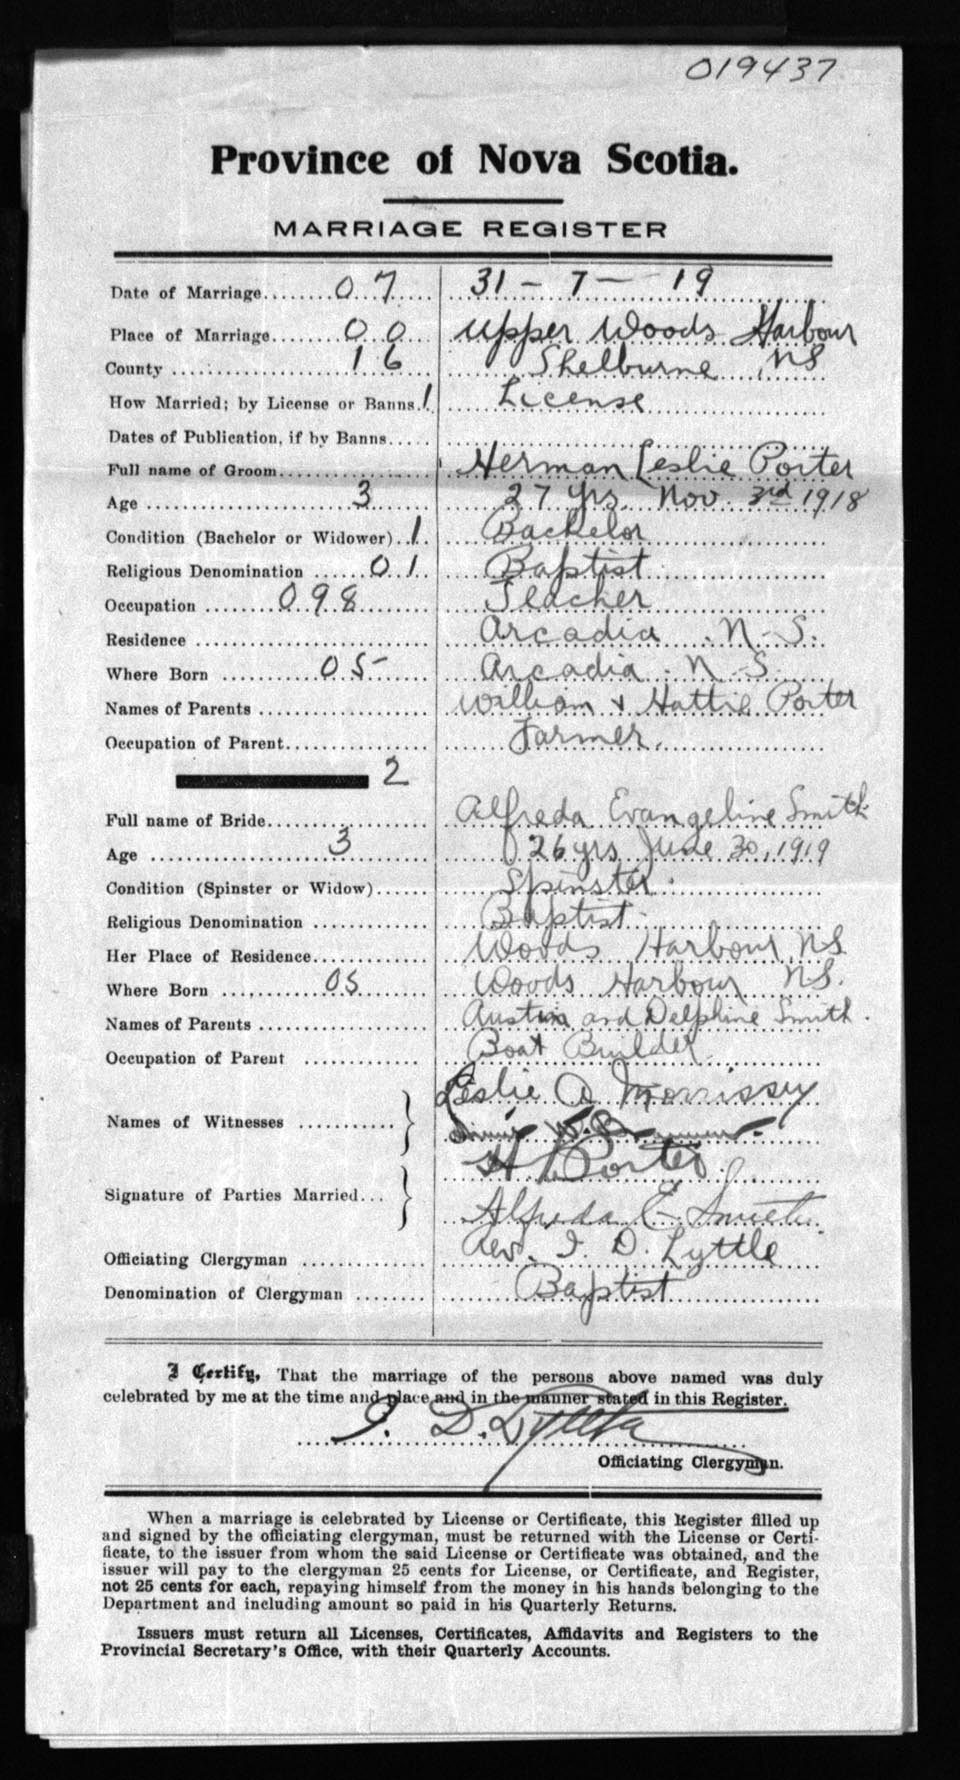 019437
Province of Nova Scotia.
MARRIAGE REGISTER
Date of Marriage........0 7..... 31 - 7 - 19
Place of Marriage.......0 0.... Upper Woods Harbour
County ..................1 6.... Shelburne, NS
How Married; by License or Banns.1 License
Dates of Publication, if by Banns.....
Full name of Groom.................... Herman Leslie Porter
Age .....................3...... 27 yrs. Nov. 3rd 1918
Condition (Bachelor or Widower)..1. Bachelor
Religious Denomination ......0 1. Baptist
Occupation ........098....... Teacher
Residence ........................ Arcadia . N-S.
Where Born ..........05-.... Arcadia . N-S.
Names of Parents .................. William + Hattie Porter
Occupation of Parent............... Farmer.
2
Full name of Bride.................. Alfreda Evangeline Smith
Age ..................3........ 26 yrs June 30, 1919
Condition (Spinster or Widow)...... Spinster.
Religious Denomination ............ Baptist.
Her Place of Residence............. Woods Harbour, NS
Where Born ..........05...... Woods Harbour NS.
Names of Parents .................. Austin and Delphine Smith.
Occupation of Parent ............ Boat Builder
Leslie A Morrissey
Names of Witnesses ........... } W.
H L Porter
Signature of Parties Married... }
Alfreda E Smith.
Officiating Clergyman ............. Rev. I. D. Lyttle
Denomination of Clergyman ........ Baptist
I Certify, That the marriage of the persons above named was duly
celebrated by me at the time and place and in the manner stated in this Register.
I. D. Lyttle
Officiating Clergyman.
When a marriage is celebrated by License or Certificate, this Register filled up
and signed by the officiating clergyman, must be returned with the License or Certi-
ficate, to the issuer from whom the said License or Certificate was obtained, and the
issuer will pay to the clergyman 25 cents for License, or Certificate, and Register,
not 25 cents for each, repaying himself from the money in his hands belonging to the
Department and including amount so paid in his Quarterly Returns.
Issuers must return all Licenses, Certificates, Affidavits and Registers to the
Provincial Secretary's Office, with their Quarterly Accounts.